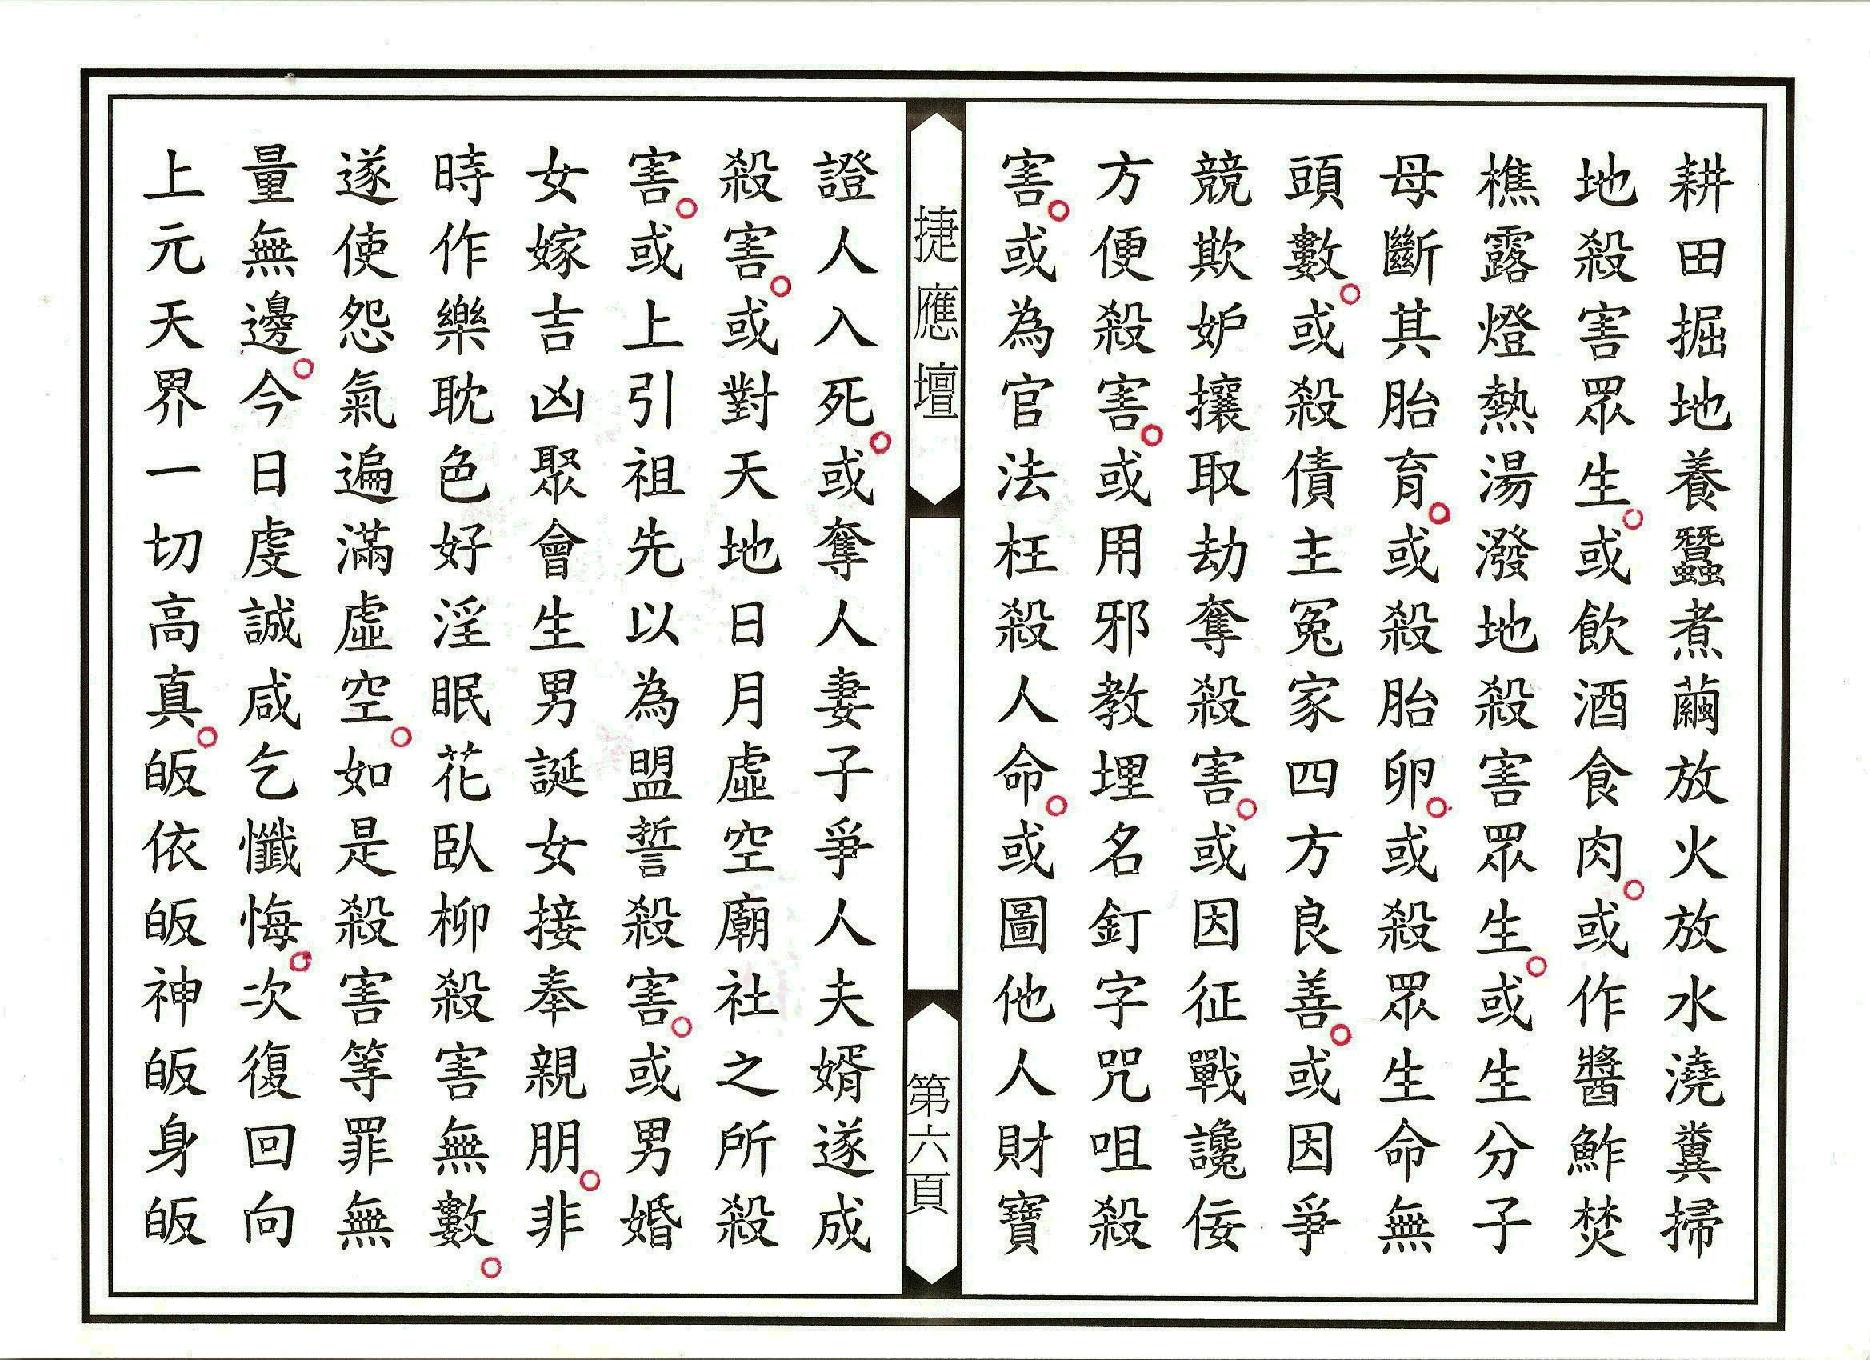 耕田掘地養蠶煮繭放火放水澆糞掃
地殺害眾生。或飲酒食肉。或作醬鮓焚
樵露燈熱湯潑地殺害眾生。或生分子
母斷其胎育。或殺胎卵。或殺眾生命無
頭數。或殺債主冤家四方良善。或因爭
競欺妒攘取劫奪殺害。或因征戰讒佞
方便殺害。或用邪教埋名釘字咒咀殺
害。或為官法枉殺人命。或圖他人財寶
捷應壇
第六頁
證人入死。或奪人妻子爭人夫婿遂成
殺害。或對天地日月虛空廟社之所殺
害。或上引祖先以為盟誓殺害。或男婚
女嫁吉凶聚會生男誕女接奉親朋。非
時作樂耽色好淫眠花臥柳殺害無數。
遂使怨氣遍滿虛空。如是殺害等罪無
量無邊。今日虔誠咸乞懺悔。次復回向
上元天界一切高真。皈依皈神皈身皈